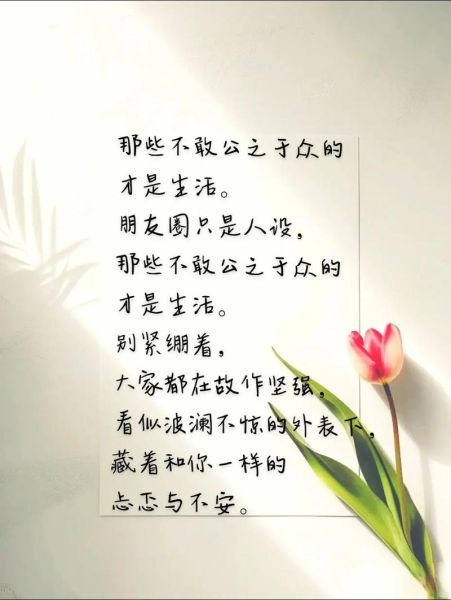 那些不敢公之于众的
才是生活。
朋友圈只是人设，
那些不敢公之于众的
才是生活。
别紧绷着，
大家都在故作坚强，
看似波澜不惊的外表下，
藏着和你一样的
忐忑与不安。